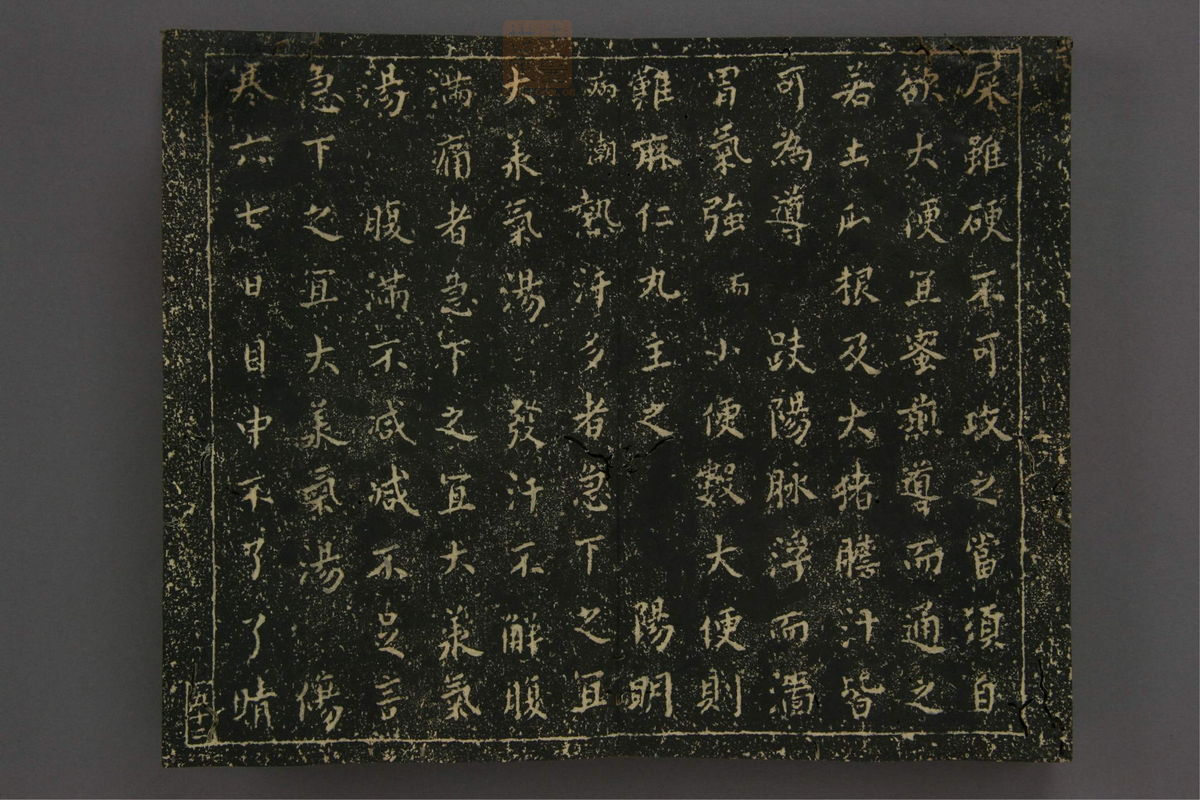 屎雖硬不可攻之當須自
欲大便宜蜜煎導而通之
若土瓜根及大猪膽汁皆
可為導 趺陽脉浮而濇
胃氣強 小便數大便則
難麻仁丸主之 陽明
病潮熱汗多者急下之宜
大承氣湯 發汗不解腹
滿痛者急下之宜大承氣
湯 腹滿不减减不足言
急下之宜大承氣湯 傷
寒六七日目中不了了睛
五十二